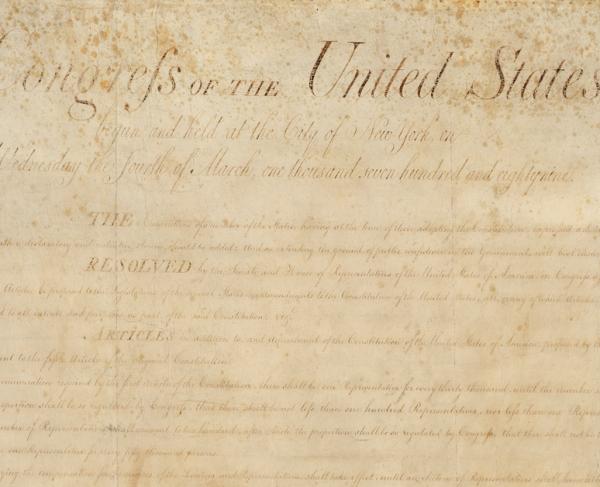 Congress OF THE United States
begun and held at the City of New York, on
Wednesday the Fourth of March, one thousand seven hundred and eighty nine.
THE Conventions of a number of the States, having at the time of their adopting the Constitution, expressed a
declaratory and restrictive clauses should be added: And as extending the ground of public confidence in the Government, will best
RESOLVED by the Senate and House of Representatives of the United States of America, in Congress
Articles be proposed to the Legislatures of the several States, as amendments to the Constitution of the United States, all, or any of which Articles
to all intents and purposes, as part of the said Constitution; vizt
ARTICLES in addition to, and Amendment of the Constitution of the United States of America, proposed by
to the fifth Article of the original Constitution.
enumeration required by the first Article of the Constitution, there shall be one Representative for every thirty thousand, until the number
proportion shall be so regulated by Congress, that there shall be not less than one hundred Representatives, nor less than one
number of Representatives shall amount to two hundred, after which the proportion shall be so regulated by Congress, that there shall not be
one Representative for every fifty thousand persons.
varying the compensation for the services of the Senators and Representatives, shall take effect, until an election of Representatives shall have